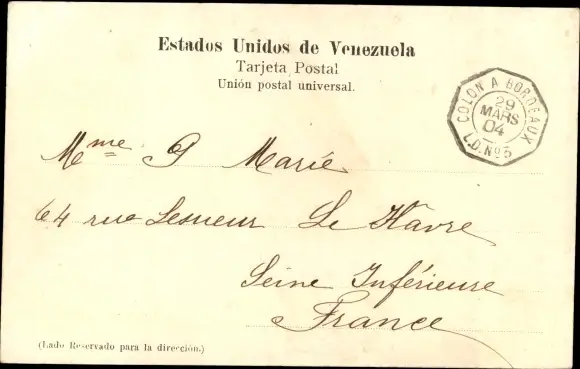 Estados Unidos de Venezuela
Tarjeta Postal
Unión postal universal.
COLON A BORDEAUX
29
MARS
04
L.D. Nº5
Mme G Marie
64 rue Lesueur Le Havre
Seine Inférieure
France
(Lado Reservado para la dirección.)